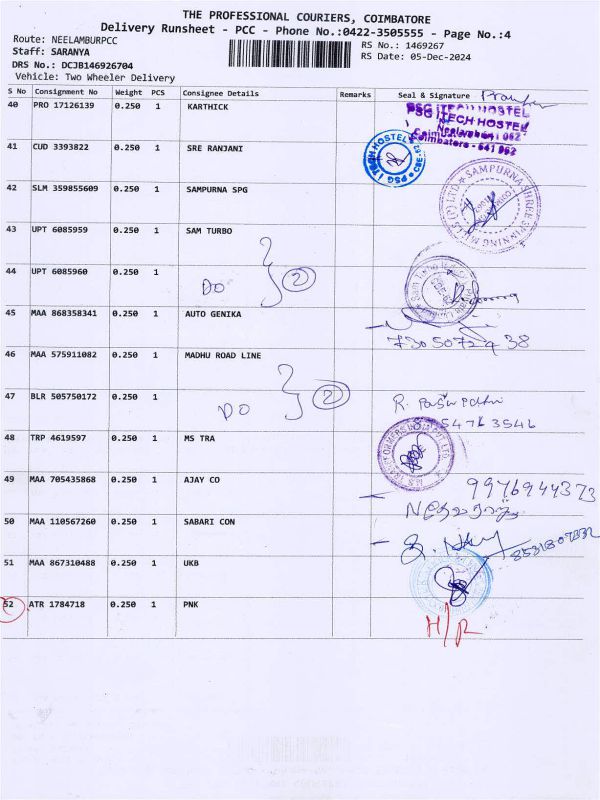 THE PROFESSIONAL COURIERS, COIMBATORE
Delivery Runsheet - PCC - Phone No.:0422-3505555 - Page No.:4
Route: NEELAMBURPCC
Staff: SARANYA
DRS No.: DCJB146926704
Vehicle: Two Wheeler Delivery
RS No.: 1469267
RS Date: 05-Dec-2024
S No Consignment No Weight PCS Consignee Details Remarks Seal & Signature
40 PRO 17126139 0.250 1 KARTHICK
PSG iTECH HOSTEL
PSG iTECH HOSTEL
Neelambur
Coimbatore - 641 062
41 CUD 3393822 0.250 1 SRE RANJANI
PSG iTECH HOSTEL
42 SLM 359855609 0.250 1 SAMPURNA SPG
SAMPURNA SHREE SPINNING MILLS (P) LTD
43 UPT 6085959 0.250 1 SAM TURBO
44 UPT 6085960 0.250 1 DO 2
45 MAA 868358341 0.250 1 AUTO GENIKA
7305072438
46 MAA 575911082 0.250 1 MADHU ROAD LINE
47 BLR 505750172 0.250 1 DO 2
R.
54763546
48 TRP 4619597 0.250 1 MS TRA
49 MAA 705435868 0.250 1 AJAY CO
9976944373
50 MAA 110567260 0.250 1 SABARI CON
51 MAA 867310488 0.250 1 UKB
52 ATR 1784718 0.250 1 PNK
H/R